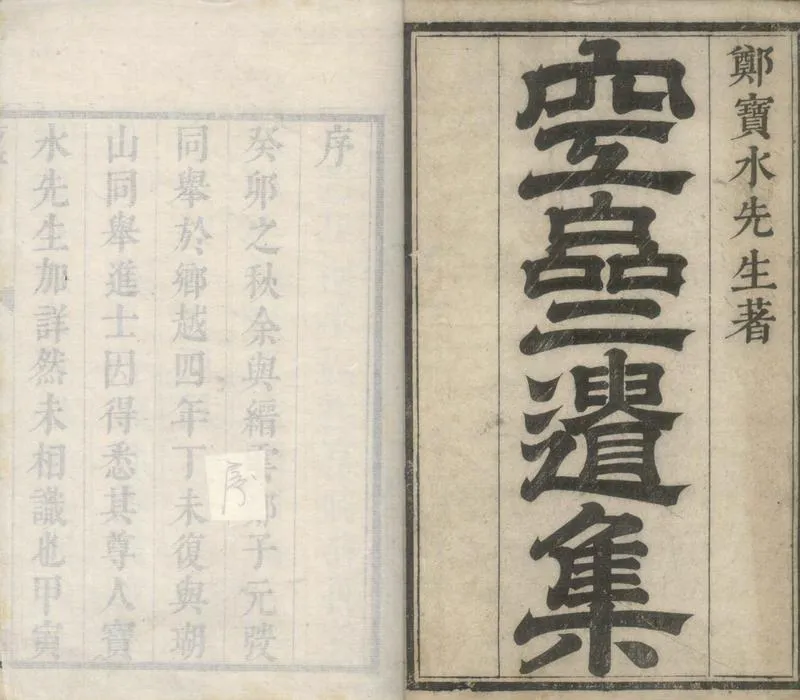 鄭寶水先生著
空遺集
序
癸卯之秋余與縉雲鄭子元發
同舉於鄉越四年丁未復與瑚
山同舉進士因得悉其尊人寶
水先生加詳然未相識也甲寅
序